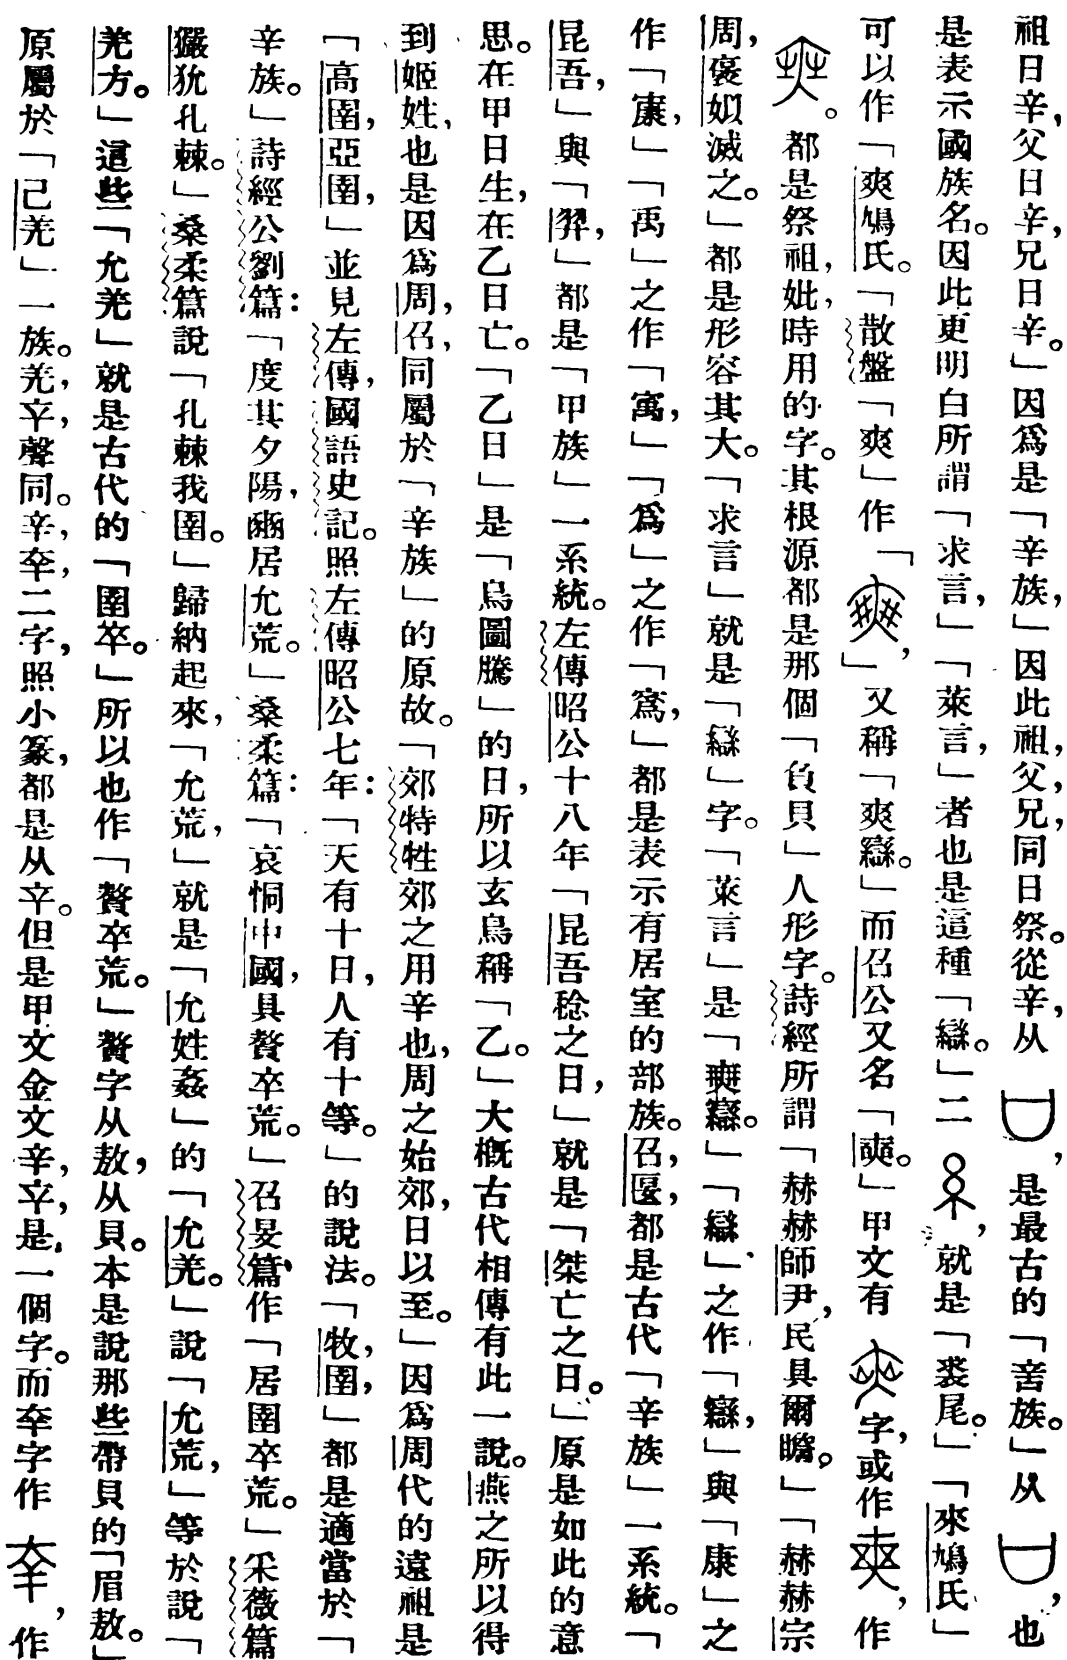 祖日辛，父日辛，兄日辛。」因爲是「辛族，」因此祖，父，兄，同日祭。從辛，从，是最古的「䇂族。」从，也
是表示國族名。因此更明白所謂「求言，」「萊言，」者也是這種「䜌。」二，就是「裘尾。」「來鳩氏」
可以作「爽鳩氏。「散盤「爽」作「，」又稱「爽䜌。」而召公又名「奭。」甲文有字，或作，作
。都是祭祖，妣，時用的字。其根源都是那個「負貝」人形字。詩經所謂「赫赫師尹，民具爾瞻。」「赫赫宗
周，褒姒滅之。」都是形容其大。「求言」就是「䜌」字。「萊言」是「奭。」「䜌」之作「，」與「康」之
作「㝩，」「禹」之作「寓，」「爲」之作「寪，」都是表示有居室的部族。召，匽，都是古代「辛族」一系統。「
昆吾，」與「羿，」都是「甲族」一系統。左傳昭公十八年「昆吾稔之日，」就是「桀亡之日。」原是如此的意
思。在甲日生，在乙日亡。「乙日」是「鳥圖騰」的日，所以玄鳥稱「乙。」大概古代相傳有此一說。燕之所以得
到姬姓，也是因爲周，召，同屬於「辛族」的原故。「郊特牲郊之用辛也，周之始郊，日以至。」因爲周代的遠祖是
「高圉，亞圉，」並見左傳，國語，史記。照左傳昭公七年：「天有十日，人有十等。」的說法。「牧，圉，」都是適當於「
辛族。」詩經公劉篇：「度其夕陽，豳居允荒。」桑柔篇：「哀恫中國，具贅卒荒。」召旻篇，作「居圉卒荒。」采薇篇
玁狁孔棘。」桑柔篇說「孔棘我圉。」歸納起來，「允荒，」就是「允姓姦」的「允羌。」說「允荒，」等於說「
羌方。」這些「允羌」就是古代的「圉卒。」所以也作「贅卒荒。」贅字从敖，从貝。本是說那些帶貝的「眉敖。」
原屬於「己羌」一族。羌，䇂，聲同。辛，㚔二字，照小篆，都是从䇂。但是甲文金文辛，䇂，是一個字。而㚔字作，作